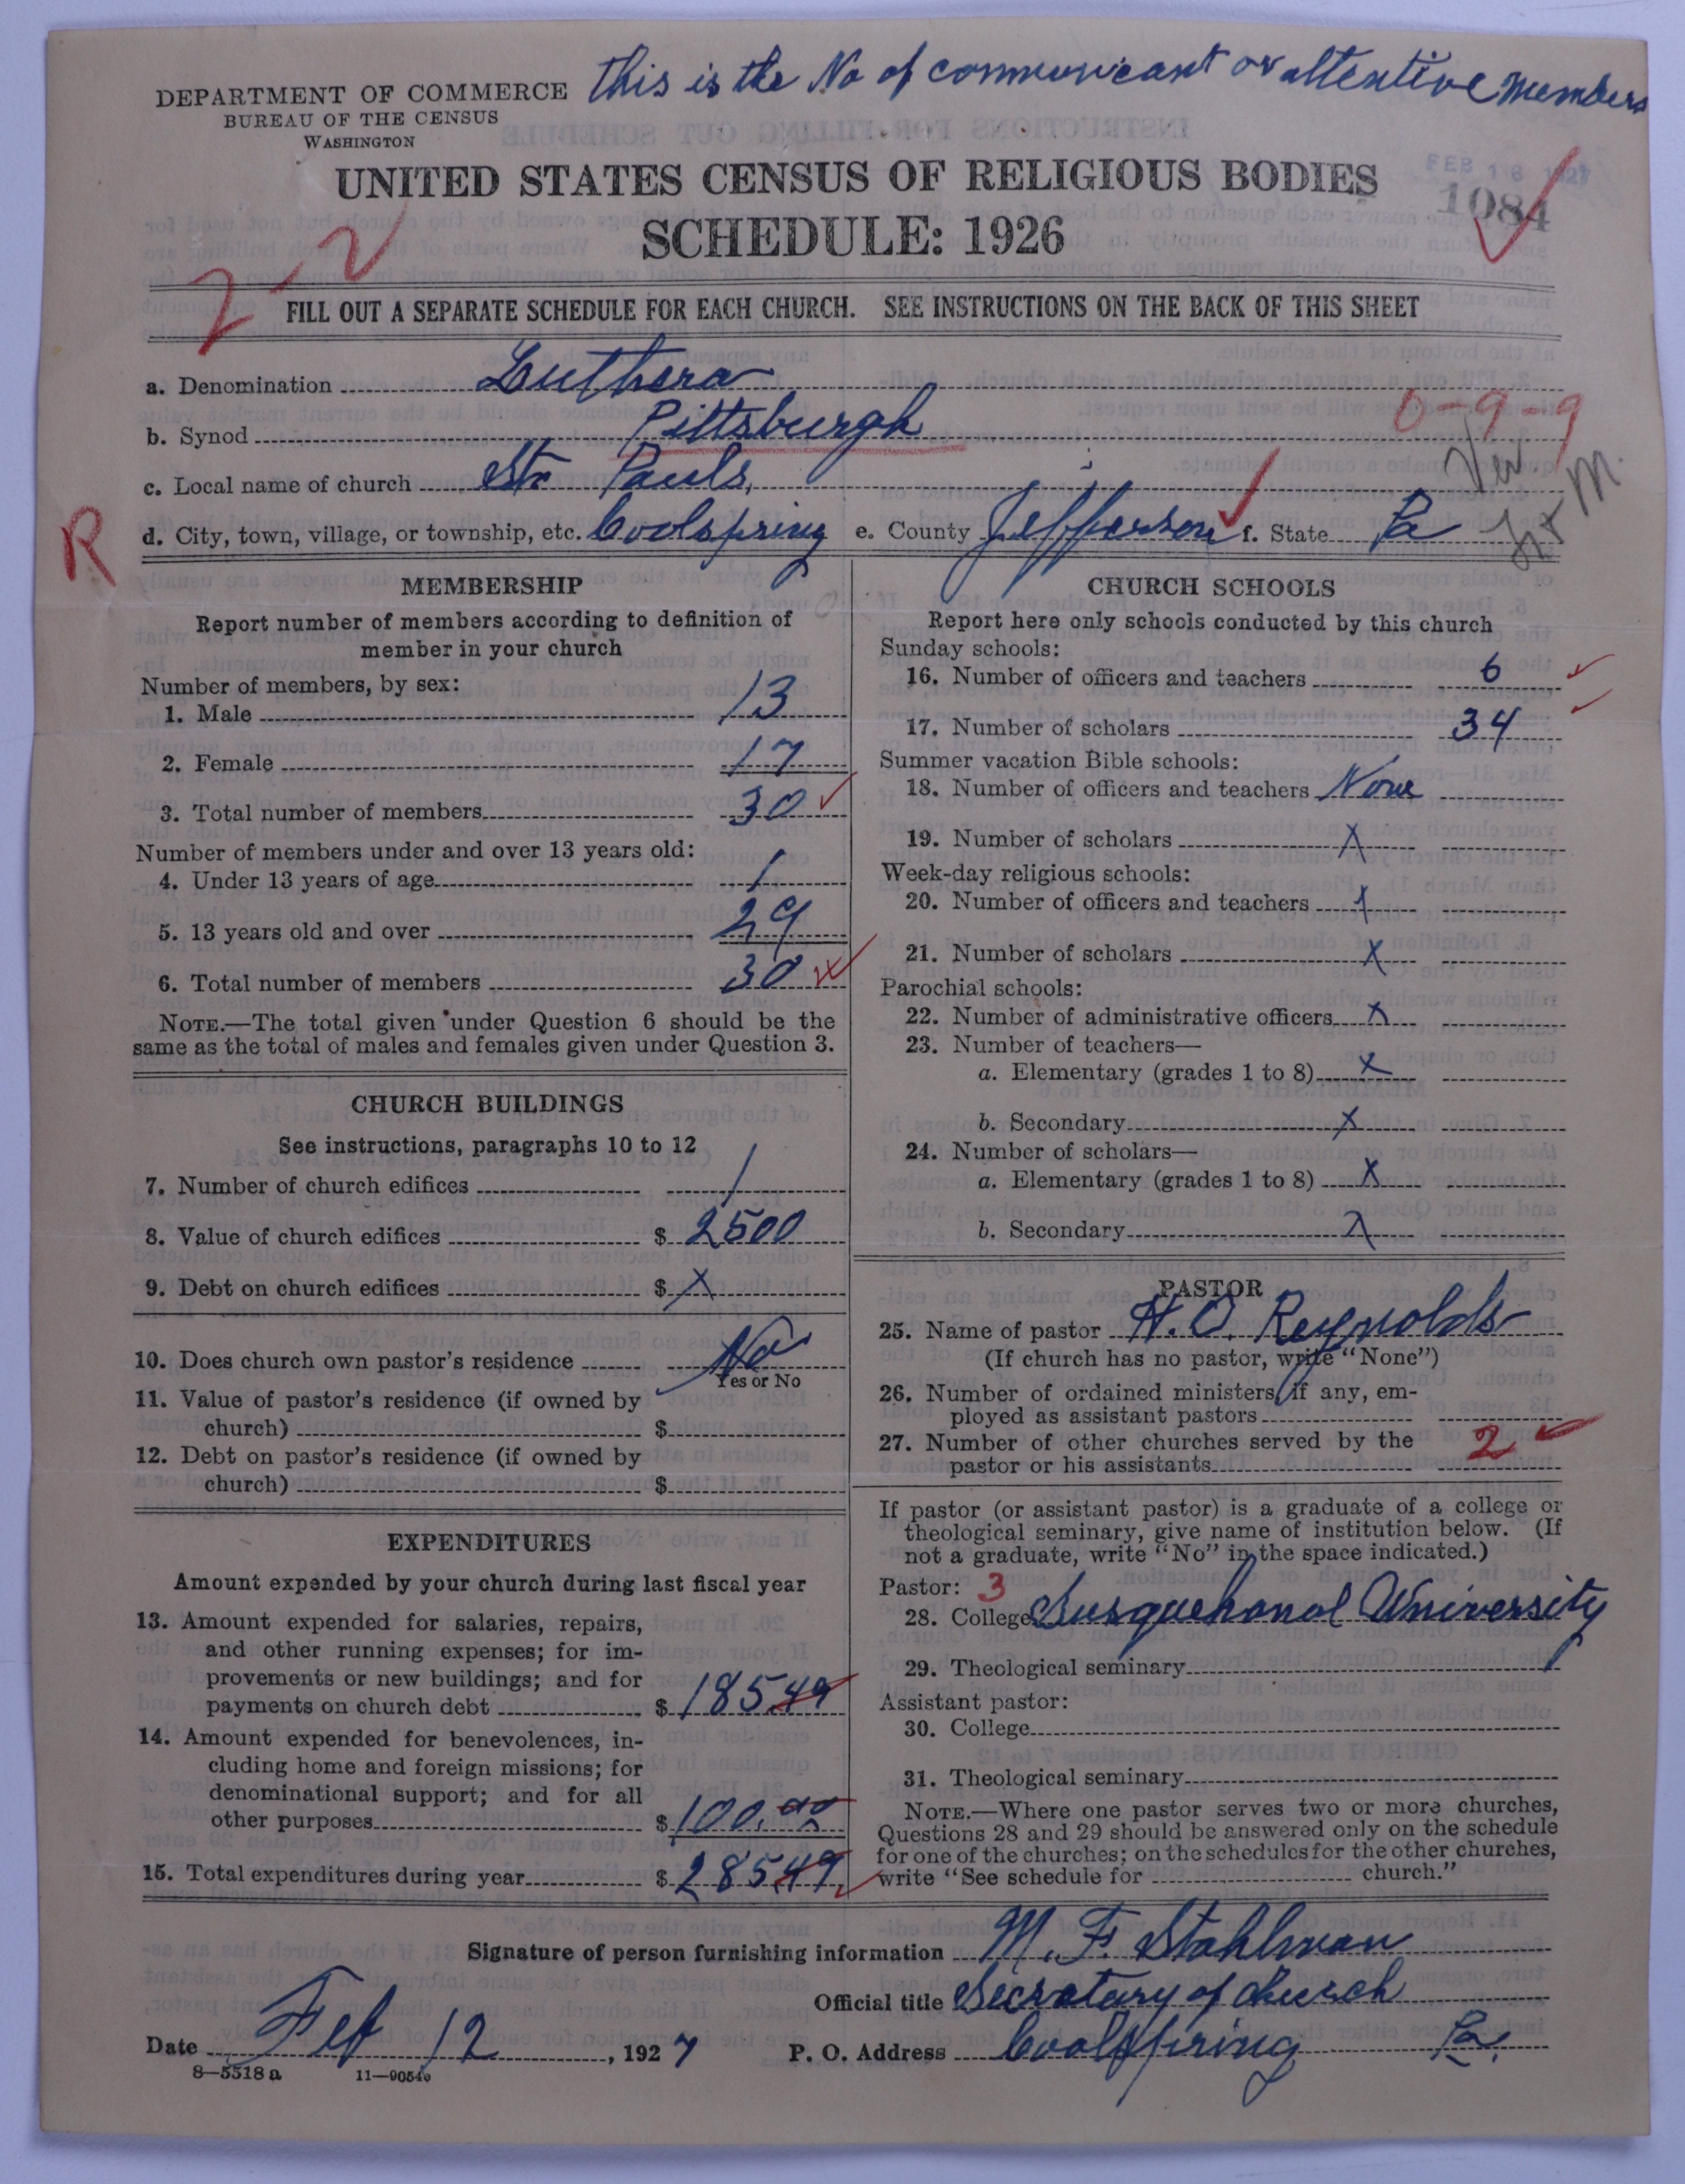 this is the No of communicant or attentive members
DEPARTMENT OF COMMERCE
BUREAU OF THE CENSUS
WASHINGTON
UNITED STATES CENSUS OF RELIGIOUS BODIES
FEB 16 1927
1084
SCHEDULE: 1926
2-2
FILL OUT A SEPARATE SCHEDULE FOR EACH CHURCH. SEE INSTRUCTIONS ON THE BACK OF THIS SHEET
a. Denomination Luthera
0-9-9
b. Synod Pittsburgh
c. Local name of church St. Pauls,
R
d. City, town, village, or township, etc. Coolspring e. County Jefferson f. State Pa
MEMBERSHIP
Report number of members according to definition of
member in your church
Number of members, by sex:
1. Male 13
2. Female 17
3. Total number of members 30
Number of members under and over 13 years old:
4. Under 13 years of age 1
5. 13 years old and over 29
6. Total number of members 30
NOTE.—The total given under Question 6 should be the
same as the total of males and females given under Question 3.
CHURCH BUILDINGS
See instructions, paragraphs 10 to 12
7. Number of church edifices 1
8. Value of church edifices $ 2500
9. Debt on church edifices $ X
10. Does church own pastor's residence No
Yes or No
11. Value of pastor's residence (if owned by
church) $
12. Debt on pastor's residence (if owned by
church) $
EXPENDITURES
Amount expended by your church during last fiscal year
13. Amount expended for salaries, repairs,
and other running expenses; for im-
provements or new buildings; and for
payments on church debt $ 185.49
14. Amount expended for benevolences, in-
cluding home and foreign missions; for
denominational support; and for all
other purposes $ 100.00
15. Total expenditures during year $ 285.49
CHURCH SCHOOLS
Report here only schools conducted by this church
Sunday schools:
16. Number of officers and teachers 6
17. Number of scholars 34
Summer vacation Bible schools:
18. Number of officers and teachers None
19. Number of scholars X
Week-day religious schools:
20. Number of officers and teachers X
21. Number of scholars X
Parochial schools:
22. Number of administrative officers X
23. Number of teachers—
a. Elementary (grades 1 to 8) X
b. Secondary X
24. Number of scholars—
a. Elementary (grades 1 to 8) X
b. Secondary X
PASTOR
25. Name of pastor H. O. Reynolds
(If church has no pastor, write "None")
26. Number of ordained ministers, if any, em-
ployed as assistant pastors
27. Number of other churches served by the
pastor or his assistants 2
If pastor (or assistant pastor) is a graduate of a college or
theological seminary, give name of institution below. (If
not a graduate, write "No" in the space indicated.)
Pastor: 3
28. College Susquehanal University
29. Theological seminary
Assistant pastor:
30. College
31. Theological seminary
NOTE.—Where one pastor serves two or more churches,
Questions 28 and 29 should be answered only on the schedule
for one of the churches; on the schedules for the other churches,
write "See schedule for church."
Signature of person furnishing information M. F. Stahlman
Official title Secratary of church
Date Feb 12, 1927 P. O. Address Coolspring Pa.
8-5518 a 11-9054c